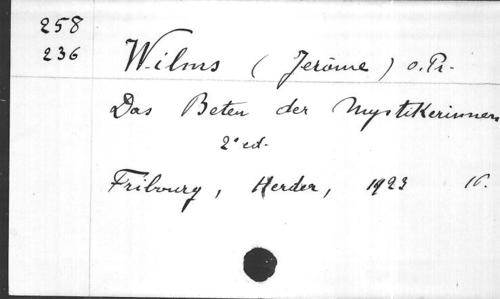 258
236
Wilms (Jerôme) O.Pr.
Das Beten der Mystikerinnen
2° ed.
Fribourg, Herder, 1923 16.